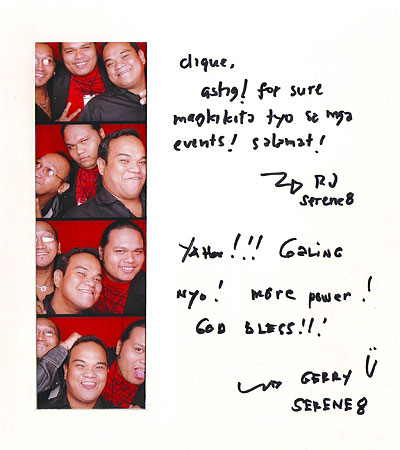 clique,
astig! for sure
magkikita tyo sa mga
events! salamat!
RJ
serene8
Yahoo!!! Galing
nyo! more power!
GOD BLESS!!!
GERRY
SERENE8